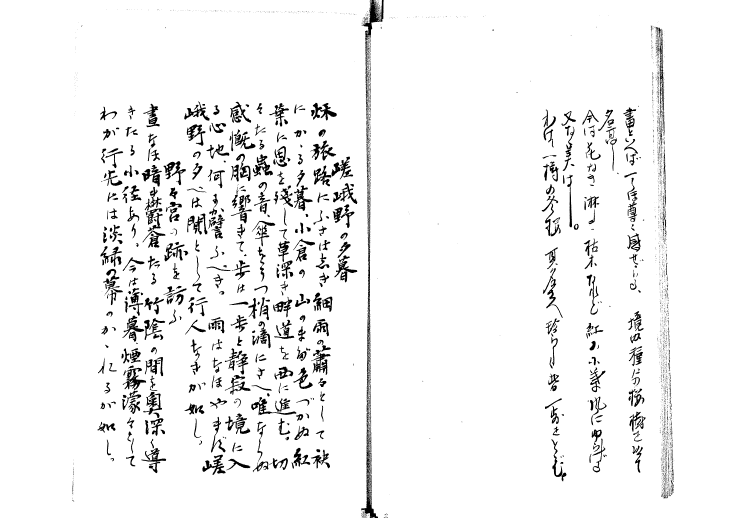 畫といへば一しほ尊く感ぜらる、境内種々の櫻樹を以て
名高し
今は花なき淋しき枯木なれど紅の小葉風に
又なう美はし。
嵯峨野の夕暮
秋の旅路にふさはしき細雨の蕭々として袂
にかゝる夕暮、小倉の山のまだ色づかぬ紅
葉に恩を殘して草深き畔道を西に進む。切
々たる蟲の音、傘をうつ梢の滴にさへ、唯ならぬ
感慨の胸に響きて、歩は一歩と靜寂の境に入
る心地、何にか譬ふべき。雨はなほやまず嵯
峨野の夕べは闃として行人なきが如し。
野々宮の跡を訪ふ
晝なほ暗き欝蒼たる竹陰の間を奥深く導
きたる小徑あり、今は薄暮煙霧濛々として
わが行先には淡緑の幕のかゝれるが如し。